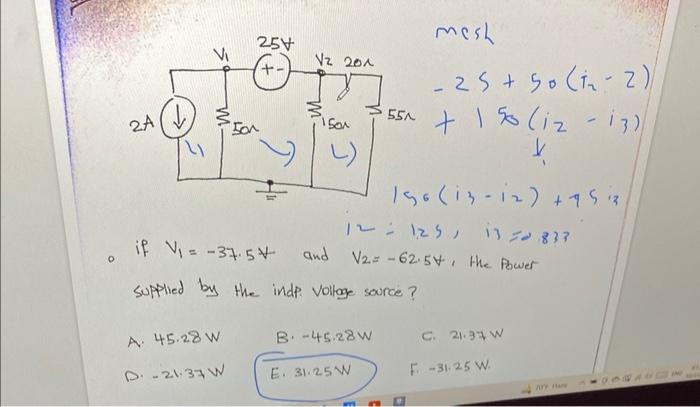 mesh
25V
V1
V2 20Ω
+ -
- 25 + 50 (i2 - 2)
+ 150 (i2 - i3)
2A
50Ω
150Ω
55Ω
150 (i3 - i2) + 75 i3
i2 = 1.25, i3 = 0.833
if V1 = -37.5V and V2 = -62.5V, the Power
supplied by the indp. Voltage source?
A. 45.28 W B. -45.28 W C. 21.37 W
D. -21.37 W E. 31.25 W F. -31.25 W.